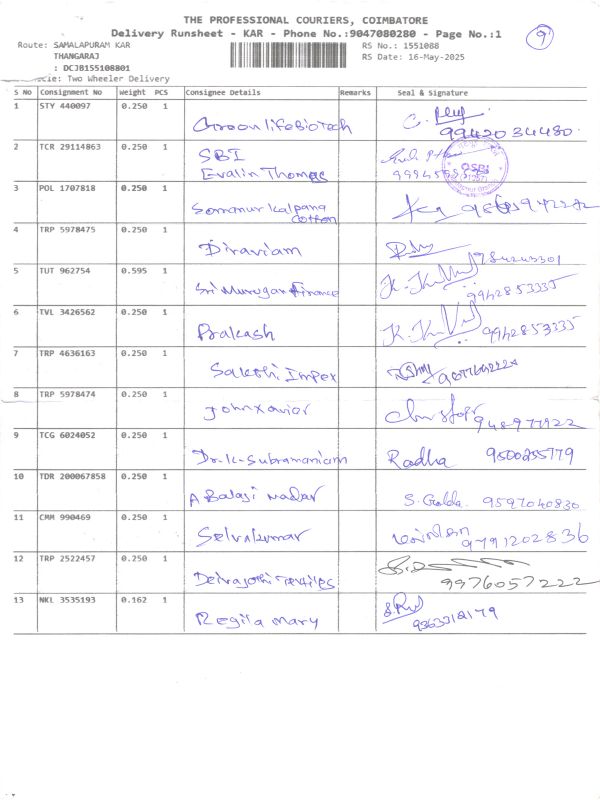 THE PROFESSIONAL COURIERS, COIMBATORE
Delivery Runsheet - KAR - Phone No.:9047080280 - Page No.:1
9
Route: SAMALAPURAM KAR
THANGARAJ
: DCJB155108801
RS No.: 1551088
RS Date: 16-May-2025
Two Wheeler Delivery
S No Consignment No Weight PCS Consignee Details Remarks Seal & Signature
1 STY 440097 0.250 1
9942034480
2 TCR 29114863 0.250 1 SBI
Evalin Thomas
3 POL 1707818 0.250 1
Somanur Kalpana
Cotton
4 TRP 5978475 0.250 1
Diraviam
5 TUT 962754 0.595 1
Sri Murugan Finance 9942853335
6 TVL 3426562 0.250 1
Prakash 9942853335
7 TRP 4636163 0.250 1
Sakthi Impex
8 TRP 5978474 0.250 1
Johnxavior
9 TCG 6024052 0.250 1
Dr-K-Subramaniam Radha 9500255779
10 TDR 200067858 0.250 1
A Balaji Nadar 9597040830
11 CMM 990469 0.250 1
Selvakumar 9791202836
12 TRP 2522457 0.250 1
9976057222
13 NKL 3535193 0.162 1
Regila mary